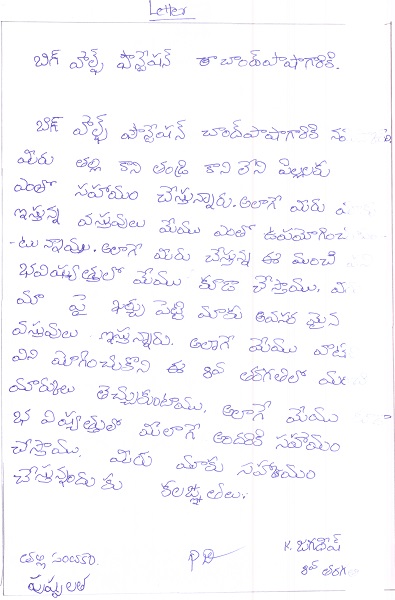 Letter
బిగ్ హెల్ప్ ఫౌన్డేషన్ చాంద్ పాషాగారికి.
బిగ్ హెల్ప్ ఫౌన్డేషన్ చాంద్ పాషాగారికి
మీరు తల్లి కాని తండ్రి కాని లేని పిల్లలకు
ఎంతో సహాయం చేస్తున్నారు. అలాగే మీరు
ఇస్తున్న వస్తువులు మేము ఎంతో ఉపయోగించు
-టున్నాము. అలాగే మీరు చేస్తున్న ఈ మంచి
భవిష్యత్తులో మేము కూడా చేస్తాము.
మా పై ఖర్చు పెట్టి మాకు అవసర మైన
వస్తువులు ఇస్తున్నారు. అలాగే మేము
విని యోగించుకొని ఈ 8వ తరగతిలో
మార్కులు తెచ్చుకుంటాము. అలాగే మేము
భ విష్యత్తులో మీలాగే అందరికి సహాయం
చేస్తాము. మీరు మాకు సహాయం
చేస్తున్నందు కు
K. జగదీష్
8వ తరగ
పుష్పలత